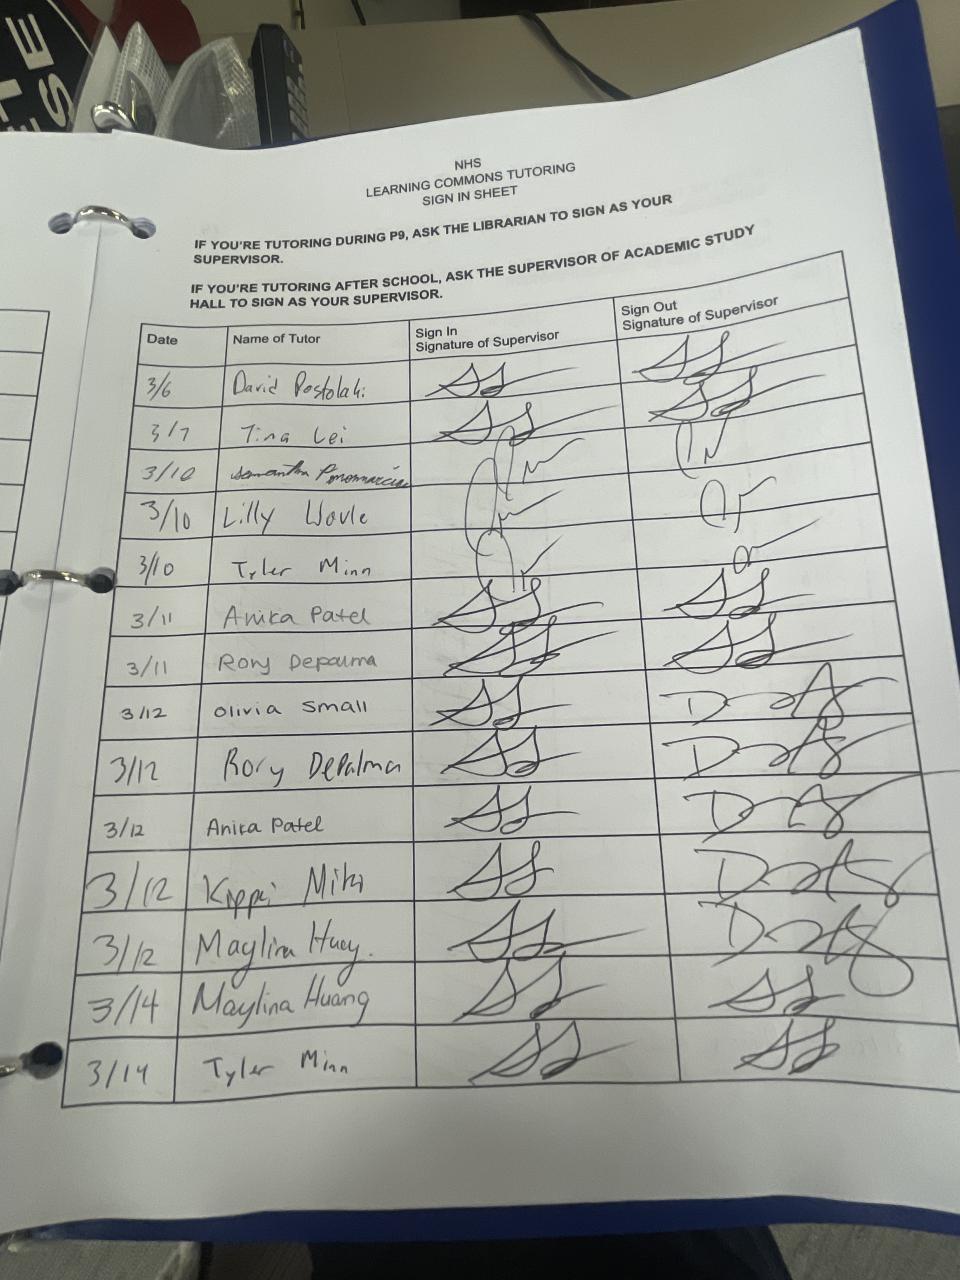 NHS
LEARNING COMMONS TUTORING
SIGN IN SHEET
IF YOU'RE TUTORING DURING P9, ASK THE LIBRARIAN TO SIGN AS YOUR
SUPERVISOR.
IF YOU'RE TUTORING AFTER SCHOOL, ASK THE SUPERVISOR OF ACADEMIC STUDY
HALL TO SIGN AS YOUR SUPERVISOR.
Date Name of Tutor Sign In Sign Out
Signature of Supervisor Signature of Supervisor
3/6 David Postolaki
3/7 Tina Lei
3/10 Samantha
3/10 Lilly
3/10 Tyler Minn
3/11 Anika Patel
3/11 Rory Depalma
3/12 Olivia Small
3/12 Rory DePalma
3/12 Anika Patel
3/12 Miki
3/12 Maylina
3/14 Maylina Huang
3/14 Tyler Minn